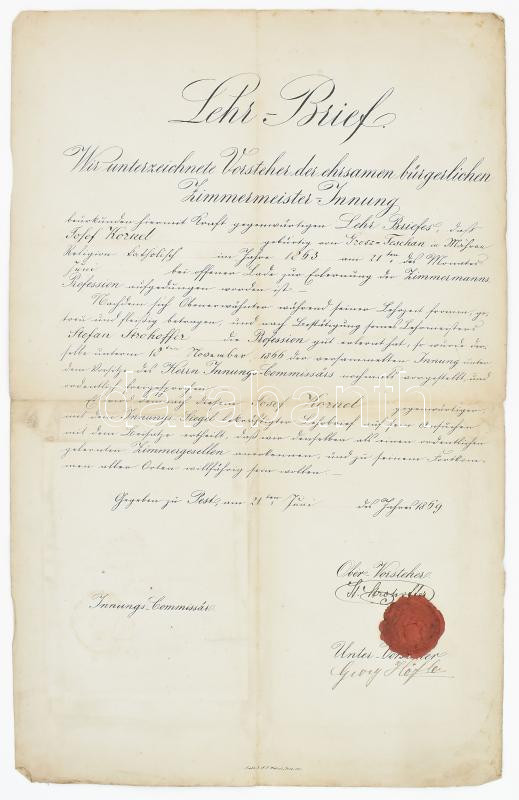 Lehr-Brief.
Wir unterzeichnete Vorsteher der ehrsamen bürgerlichen
Zimmermeister-Innung
beurkunden hiermit Kraft gegenwärtigen Lehr-Briefes, daß
Josef Kornel gebürtig von Gross-Teschan in Mähren
Religion katholisch im Jahre 1863 am 21ten des Monates
Juni bei offener Lade zur Erlernung der Zimmermanns
Profession aufgedungen worden ist.
Nachdem sich Obenerwähnter während seiner Lehrzeit fromm, ge-
treu und fleißig betragen, und nach Bestättigung seines Lehrmeisters
Stefan Strohoffer die Profession gut erlernt hat, so wurde der-
selbe unterm 18ten November 1866 der versammelten Innung unter
dem Vorsitze des Herrn Innungs-Commissärs nochmals vorgestellt, und
ordentlich freigesprochen.
Es wird nach diesem Josef Kornel gegenwärtiger,
mit dem Innungs-Siegel bekräftigter Lehrbrief auf sein Ansuchen
mit dem Beisatze ertheilt, daß wir denselben als einen ordentlichen
gelernten Zimmergesellen anerkennen, und zu seinem Fortkom-
men aller Orten willfährig sein wollen.
Gegeben zu Pest, am 21ten Juni des Jahres 1869
Ober-Vorsteher
St. Strohoffer
Innungs-Commissär
Unter-Vorsteher
Georg Höfle
darabanth